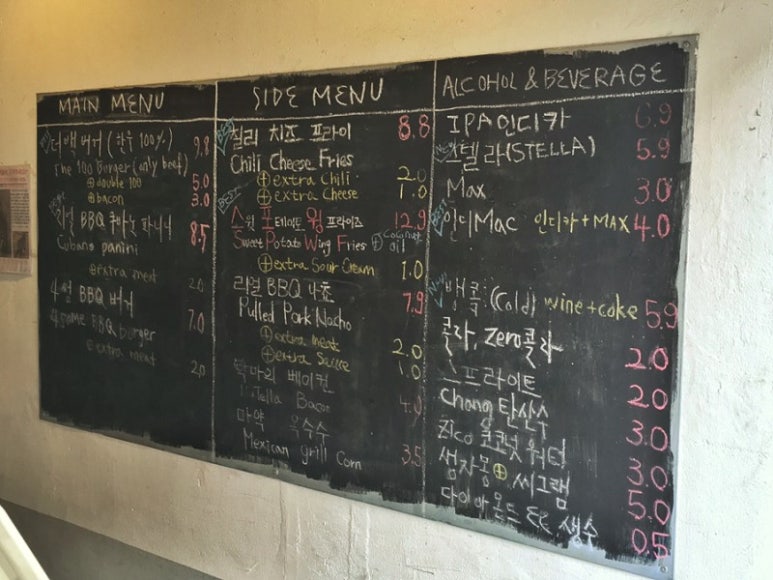 MAIN MENU
더백버거 (한우 100%) 9.8
The 100 Burger (only beef)
⊕ double 100 5.0
⊕ bacon 3.0
BEST
리얼 BBQ 쿠바노 파니니 8.5
Cubano panini
⊕ extra meat 2.0
4썸 BBQ 버거
4some BBQ burger 7.0
extra meat 2.0
SIDE MENU
BEST
칠리 치즈 프라이 8.8
Chili Cheese Fries
⊕ extra Chili 2.0
⊕ extra Cheese 1.0
BEST
스윗 포테이토 윙 프라이즈 12.9
Sweet Potato Wing Fries ⊕ Coconut oil
⊕ extra Sour Cream 1.0
리얼 BBQ 나쵸 7.9
Pulled Pork Nacho
⊕ extra meat 2.0
⊕ extra Sauce 1.0
베이컨
Bacon 4.0
마약 옥수수
Mexican grill Corn 3.5
ALCOHOL & BEVERAGE
IPA 인디카 6.9
스텔라 (STELLA) 5.9
Max 3.0
BEST
인디Mac 인디카 + MAX 4.0
New
뱅쿡 (Cold) wine + coke 5.9
콜라, Zero콜라 2.0
스프라이트 2.0
Chong 탄산수 3.0
Zico 코코넛 워터 3.0
생자몽 ⊕ 씨그램 5.0
다이아몬드 생수 0.5